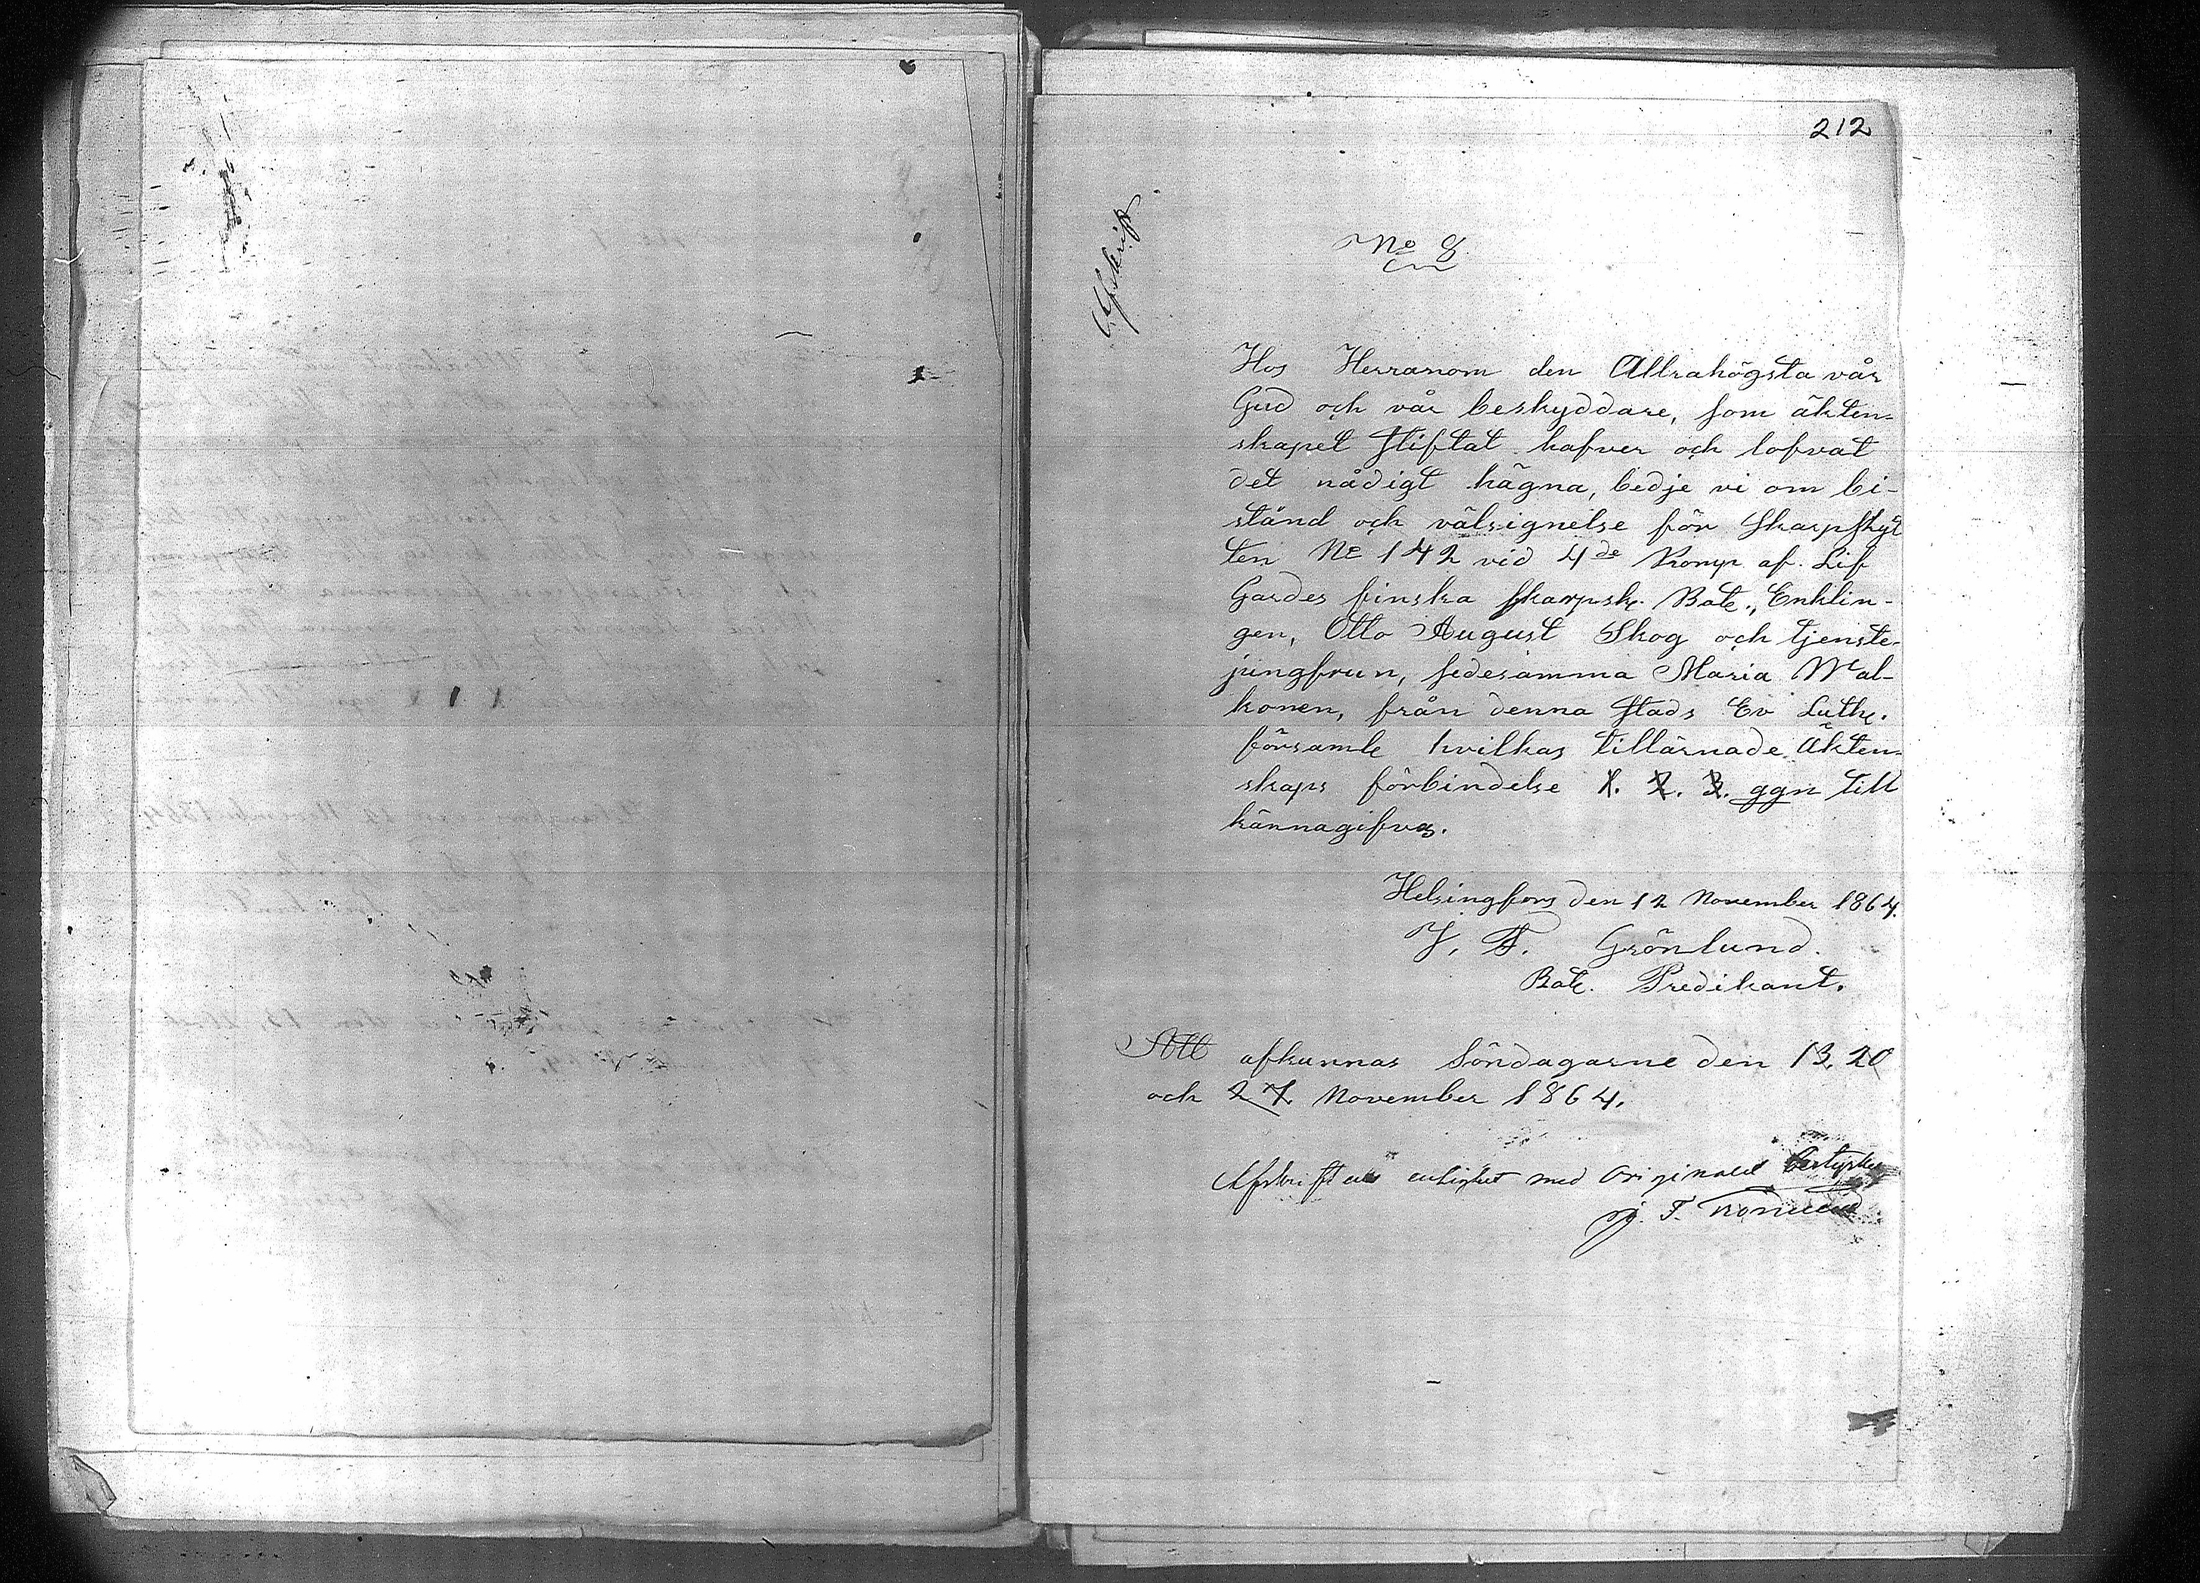 212
Afskrift
No 8
Hos Herranom den Allrahögsta vår
Gud och vår beskyddare, som äkten-
skapet stiftat hafver och lofvat
det nådigt hägna, bedje vi om bi-
stånd och välsignelse för Skarpskyt
ten No 142 vid 4de Komp af. Lif
Gardes finska skarpsk. Bat., Enklin-
gen, Otto August Skog och tjenste-
jungfrun, sedesamma Maria Mal-
konen, från denna stads Ev Luth.
församl hvilkas tillärnade äkten-
skaps förbindelse 1. 2. 3. ggn till
kännagifves.
Helsingfors den 12 November 1864.
J. F. Grönlund.
Bat. Predikant.
Att afkunnas Söndagarne den 13, 20
och 27 November 1864.
Afskriftens enlighet med Originalet bestyrker
J. F. Grönlund